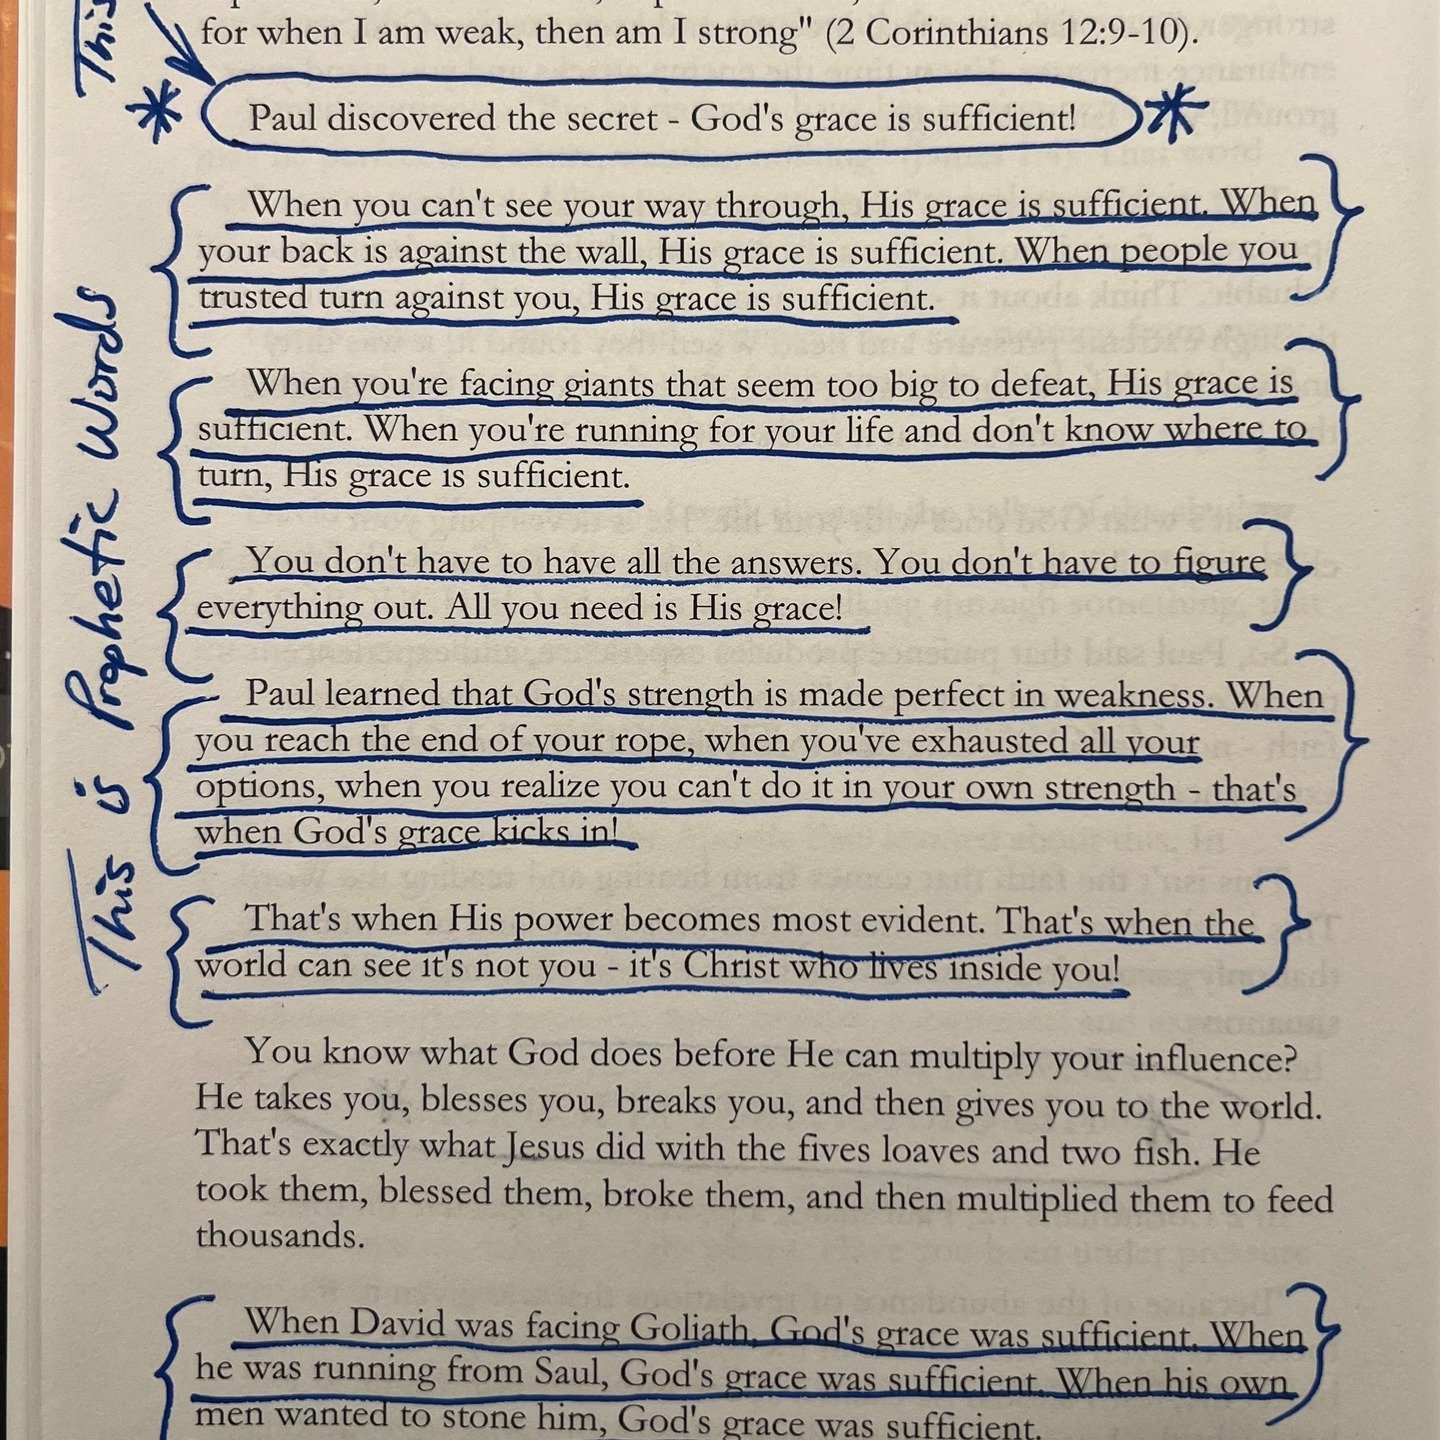 This
for when I am weak, then am I strong" (2 Corinthians 12:9-10).
Paul discovered the secret - God's grace is sufficient!
When you can't see your way through, His grace is sufficient. When
your back is against the wall, His grace is sufficient. When people you
trusted turn against you, His grace is sufficient.
When you're facing giants that seem too big to defeat, His grace is
sufficient. When you're running for your life and don't know where to
turn, His grace is sufficient.
You don't have to have all the answers. You don't have to figure
everything out. All you need is His grace!
Paul learned that God's strength is made perfect in weakness. When
you reach the end of your rope, when you've exhausted all your
options, when you realize you can't do it in your own strength - that's
when God's grace kicks in!
That's when His power becomes most evident. That's when the
world can see it's not you - it's Christ who lives inside you!
This is Prophetic Words
You know what God does before He can multiply your influence?
He takes you, blesses you, breaks you, and then gives you to the world.
That's exactly what Jesus did with the fives loaves and two fish. He
took them, blessed them, broke them, and then multiplied them to feed
thousands.
When David was facing Goliath, God's grace was sufficient. When
he was running from Saul, God's grace was sufficient. When his own
men wanted to stone him, God's grace was sufficient.